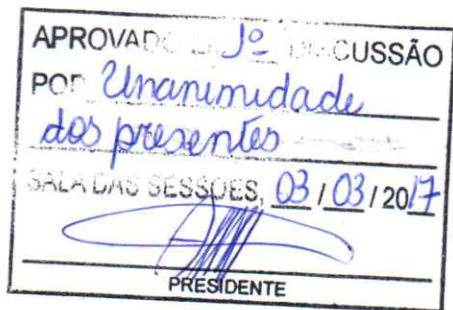 APROVADO EM 1º DISCUSSÃO
POR Unanimidade
dos presentes
SALA DAS SESSÕES, 03 / 03 / 2017
PRESIDENTE